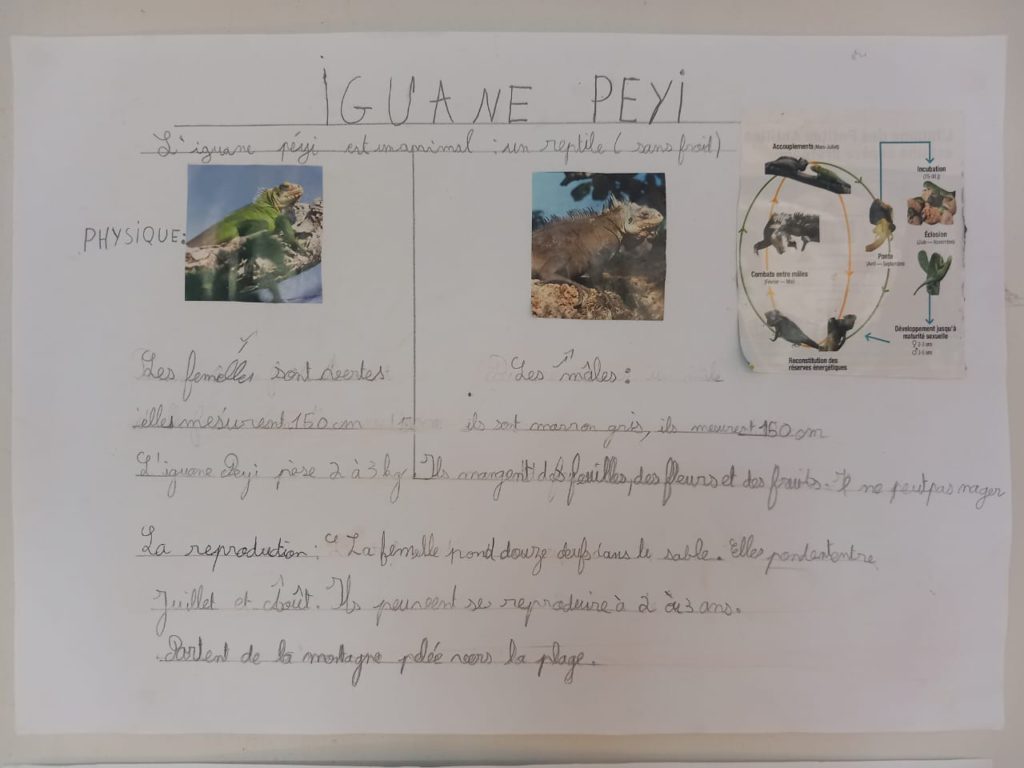 IGUANE PEYI
L'iguane péyi est un animal : un reptile (sans froid)
PHYSIQUE:
Les femelles sont vertes
elles mesurent 150 cm
L'iguane Peyi pèse 2 à 3 kg
Les mâles :
ils sont marron gris, ils mesurent 150 cm
Ils mangent des feuilles, des fleurs et des fruits. Il ne peut pas nager
La reproduction : La femelle pond douze œufs dans le sable. Elles pondent entre
Juillet et Août. Ils peuvent se reproduire à 2 à 3 ans.
Partent de la montagne pelée vers la plage.
Accouplements (Mars-Juillet)
Incubation
Éclosion
(Juin — Novembre)
Ponte
(Avril — Septembre)
Combats entre mâles
(Février — Mai)
Développement jusqu'à
maturité sexuelle
♀ 2-3 ans
Reconstitution des
réserves énergétiques